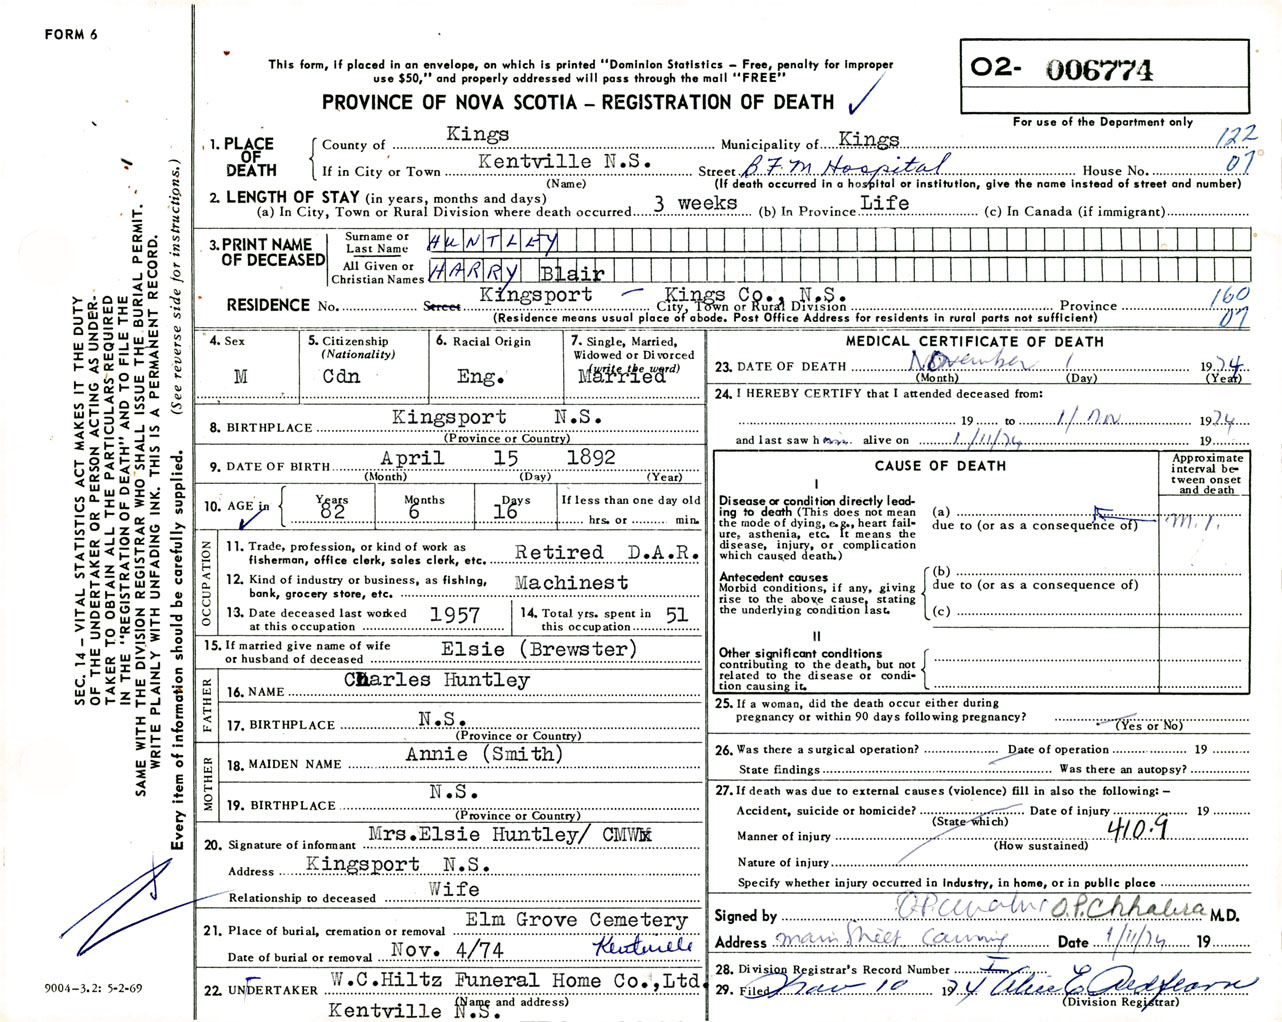 FORM 6
This form, if placed in an envelope, on which is printed "Dominion Statistics – Free, penalty for improper
use $50," and properly addressed will pass through the mail "FREE"
PROVINCE OF NOVA SCOTIA – REGISTRATION OF DEATH
O2- 006774
For use of the Department only
122
07
1. PLACE OF DEATH
County of Kings Municipality of Kings
If in City or Town Kentville N.S. Street B.F.M Hospital House No.
(Name) (If death occurred in a hospital or institution, give the name instead of street and number)
2. LENGTH OF STAY (in years, months and days)
(a) In City, Town or Rural Division where death occurred 3 weeks (b) In Province Life (c) In Canada (if immigrant)
3. PRINT NAME OF DECEASED
Surname or Last Name HUNTLEY
All Given or Christian Names HARRY Blair
RESIDENCE No. Street Kingsport – Kings Co., N.S. City, Town or Rural Division Province
160
07
(Residence means usual place of abode. Post Office Address for residents in rural parts not sufficient)
4. Sex
M
5. Citizenship
(Nationality)
Cdn
6. Racial Origin
Eng.
7. Single, Married,
Widowed or Divorced
(write the word)
Married
8. BIRTHPLACE Kingsport N.S.
(Province or Country)
9. DATE OF BIRTH April 15 1892
(Month) (Day) (Year)
10. AGE in
Years 82
Months 6
Days 16
If less than one day old
hrs. or min.
OCCUPATION
11. Trade, profession, or kind of work as
fisherman, office clerk, sales clerk, etc. Retired D.A.R.
12. Kind of industry or business, as fishing,
bank, grocery store, etc. Machinest
13. Date deceased last worked
at this occupation 1957
14. Total yrs. spent in
this occupation 51
15. If married give name of wife
or husband of deceased Elsie (Brewster)
FATHER
16. NAME Charles Huntley
17. BIRTHPLACE N.S.
(Province or Country)
MOTHER
18. MAIDEN NAME Annie (Smith)
19. BIRTHPLACE N.S.
(Province or Country)
20. Signature of informant Mrs.Elsie Huntley/ CMW
Address Kingsport N.S.
Relationship to deceased Wife
21. Place of burial, cremation or removal Elm Grove Cemetery
Date of burial or removal Nov. 4/74 Kentville
22. UNDERTAKER W.C.Hiltz Funeral Home Co.,Ltd.
(Name and address)
Kentville N.S.
MEDICAL CERTIFICATE OF DEATH
23. DATE OF DEATH November 1 1974
(Month) (Day) (Year)
24. I HEREBY CERTIFY that I attended deceased from:
19 to 1/Nov 1974
and last saw him alive on 1/11/74 19
CAUSE OF DEATH
Approximate
interval be-
tween onset
and death
I
Disease or condition directly lead-
ing to death (This does not mean
the mode of dying, e.g., heart fail-
ure, asthenia, etc. It means the
disease, injury, or complication
which caused death.)
(a)
due to (or as a consequence of)
M.I.
Antecedent causes
Morbid conditions, if any, giving
rise to the above cause, stating
the underlying condition last.
(b)
due to (or as a consequence of)
(c)
II
Other significant conditions
contributing to the death, but not
related to the disease or condi-
tion causing it.
25. If a woman, did the death occur either during
pregnancy or within 90 days following pregnancy?
(Yes or No)
26. Was there a surgical operation? Date of operation 19
State findings Was there an autopsy?
27. If death was due to external causes (violence) fill in also the following: –
Accident, suicide or homicide? Date of injury 19
(State which)
Manner of injury 410.9
(How sustained)
Nature of injury
Specify whether injury occurred in industry, in home, or in public place
Signed by O.P.Chhabra M.D.
Address Main Street Canning Date 1/11/74 19
28. Division Registrar's Record Number
29. Filed Nov 10 1974
(Division Registrar)
SEC. 14 – VITAL STATISTICS ACT MAKES IT THE DUTY
OF THE UNDERTAKER OR PERSON ACTING AS UNDER-
TAKER TO OBTAIN ALL THE PARTICULARS REQUIRED
IN THE "REGISTRATION OF DEATH" AND TO FILE THE
SAME WITH THE DIVISION REGISTRAR WHO SHALL ISSUE THE BURIAL PERMIT.
WRITE PLAINLY WITH UNFADING INK. THIS IS A PERMANENT RECORD.
Every item of information should be carefully supplied. (See reverse side for instructions.)
9004-3.2: 5-2-69